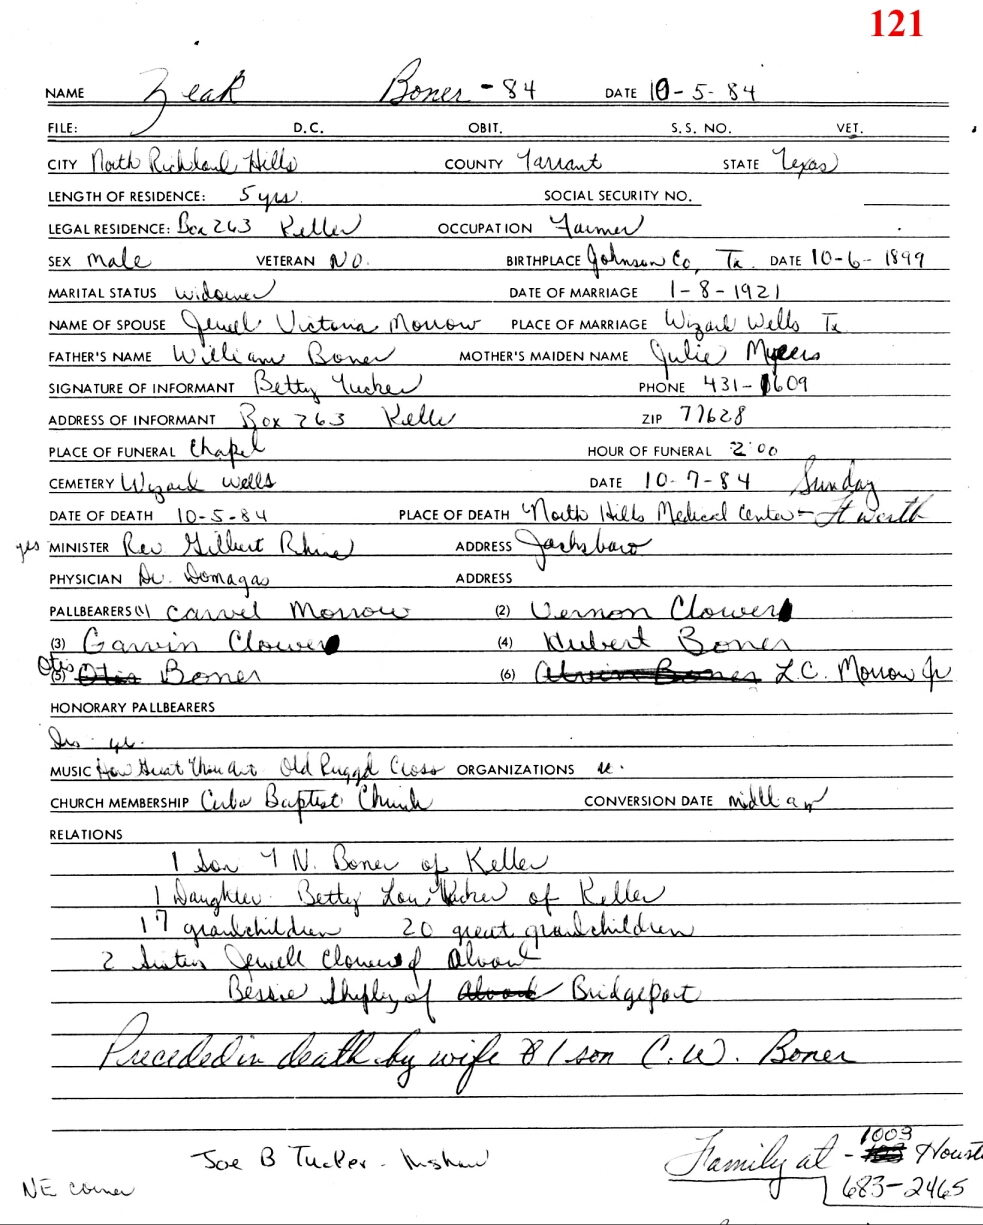 121
NAME Zeak Boner - 84 DATE 10-5-84
FILE: D.C. OBIT. S.S. NO. VET.
CITY North Richland Hills COUNTY Tarrant STATE Texas
LENGTH OF RESIDENCE: 5 yrs. SOCIAL SECURITY NO.
LEGAL RESIDENCE: Box 263 Keller OCCUPATION Farmer
SEX Male VETERAN NO. BIRTHPLACE Johnson Co, Tx. DATE 10-6-1899
MARITAL STATUS Widower DATE OF MARRIAGE 1-8-1921
NAME OF SPOUSE Jewel Victoria Morrow PLACE OF MARRIAGE Wizard Wells Tx
FATHER'S NAME William Boner MOTHER'S MAIDEN NAME Julie Myers
SIGNATURE OF INFORMANT Betty Tucker PHONE 431-1609
ADDRESS OF INFORMANT Box 263 Keller ZIP 77628
PLACE OF FUNERAL Chapel HOUR OF FUNERAL 2:00
CEMETERY Wizard Wells DATE 10-7-84 Sunday
DATE OF DEATH 10-5-84 PLACE OF DEATH North Hills Medical Center - Ft Worth
yes MINISTER Rev Gilbert Rhine ADDRESS Jacksboro
PHYSICIAN Dr. Domagas ADDRESS
PALLBEARERS (1) Carvel Morrow (2) Vernon Clower
(3) Garvin Clower (4) Hubert Boner
(5) Otis Boner (6) Alvin Boner L.C. Morrow Jr
HONORARY PALLBEARERS
MUSIC How Great Thou Art Old Rugged Cross ORGANIZATIONS
CHURCH MEMBERSHIP Cuba Baptist Church CONVERSION DATE
RELATIONS
1 Son T N. Boner of Keller
1 Daughter. Betty Lou Tucker of Keller
17 grandchildren 20 great grandchildren
2 Sisters Jewell Clower of Alvord
Bessie Shipley of Alvord Bridgeport
Preceded in death by wife & 1 son C.W. Boner
Joe B Tucker -
Family at - 1003 Houst
683-2465
NE corner